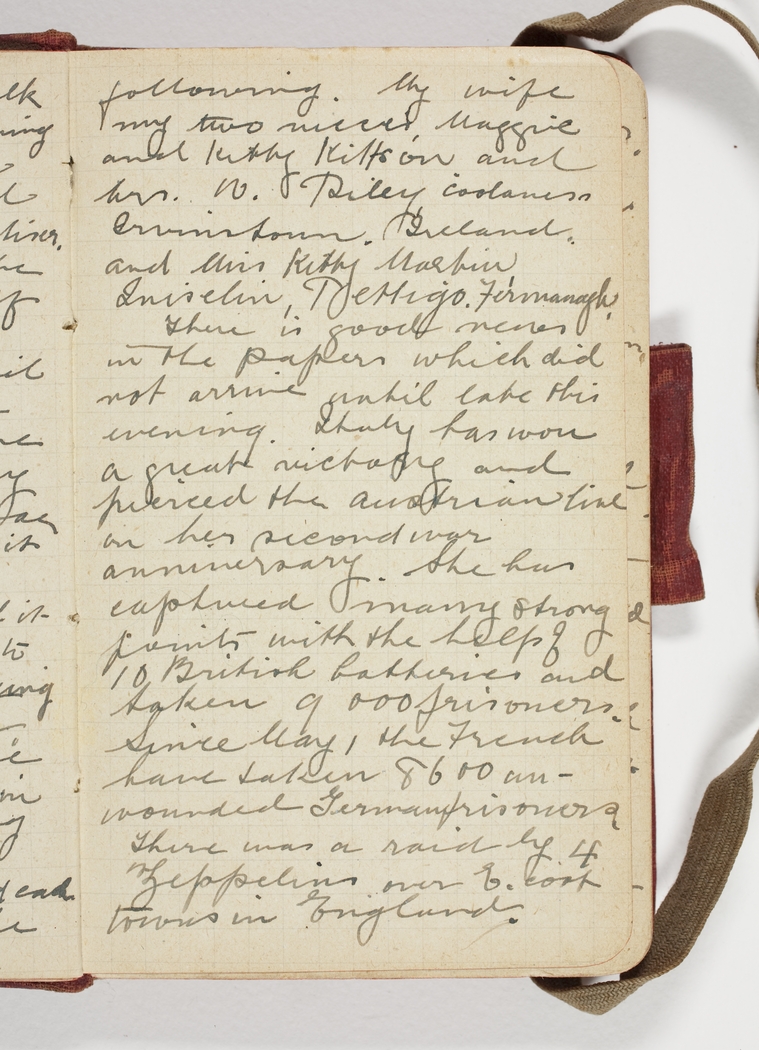 lk
ning
l
tiser.
be
of
il
ne
y
it
it-
to
king
e
in
y
each
following. My wife
my two nieces, Maggie
and Kitty Kittson and
Mrs. W. Riley, coolaness
Ervinstown. Ireland.
and Miss Kitty Martin
Iniselin, Pettigo. Fermanagh.
There is good news
in the papers which did
not arrive until late this
evening. Italy has won
a great victory and
pierced the Austrian line.
on her second war
anniversary. She has
captured many strong
points with the help of
10 British batteries and
taken 9000 prisoners.
Since May 1 the French
have taken 8600 un-
wounded German prisoners
There was a raid by 4
or Zeppelins over E. cost
towns in England.